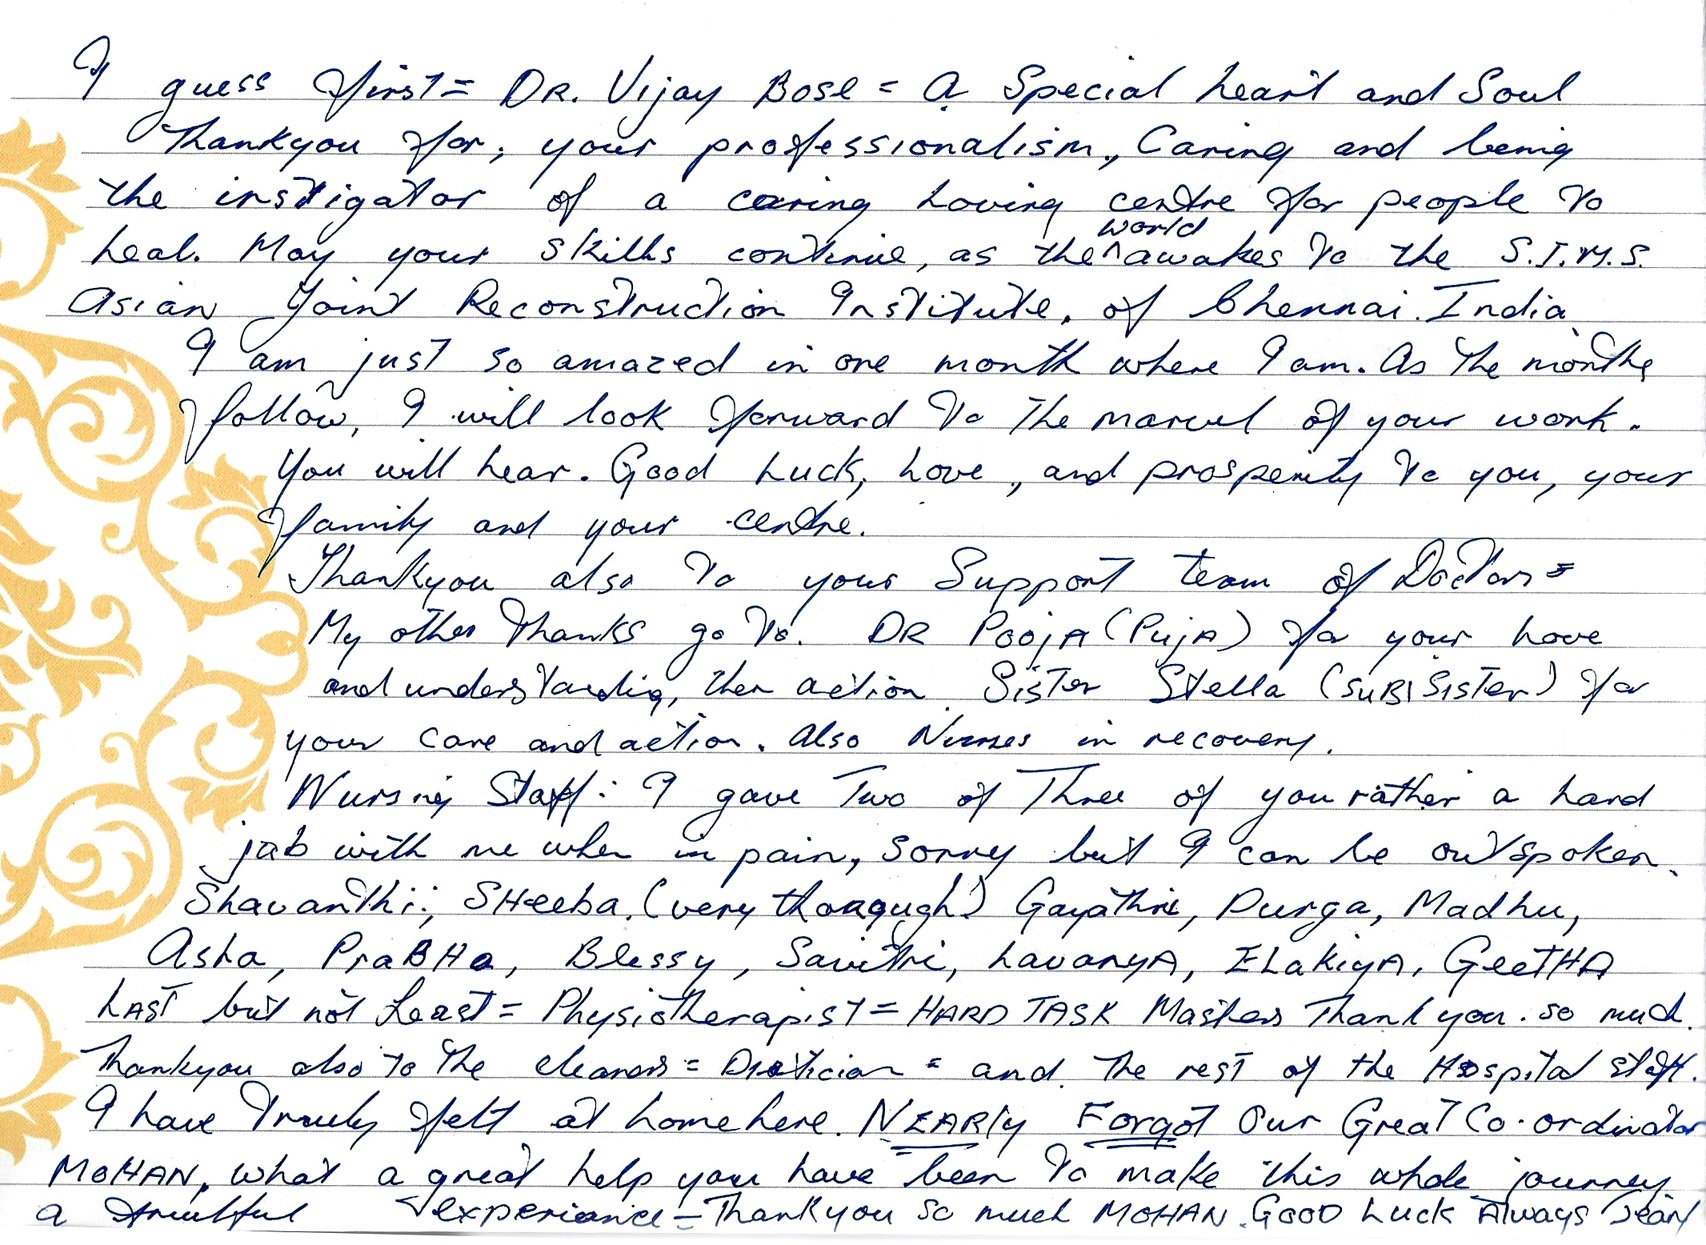 I guess first = DR. Vijay Bose = a Special heart and Soul
Thankyou for, your professionalism, Caring and being
the instigator of a caring loving centre for people to
heal. May your skills continue, as the ^ world awakes to the S.I.M.S.
Asian Joint Reconstruction Institute, of Chennai. India
I am just so amazed in one month where I am. As the months
follow, I will look forward to the marvel of your work.
You will hear. Good Luck, Love, and prosperity to you, your
family and your centre.
Thankyou also to your Support team of Doctors =
My other thanks go to. DR POOJA (PujA) for your love
and understanding, then action Sister Stella (SUBI SISTER) for
your care and action. Also Nurses in recovery.
Nursing Staff: I gave Two of Three of you rather a hard
jab with me when in pain, sorry but I can be outspoken.
Shavanthi; SHeeba. (very thoraqugh) Gayathri, Durga, Madhu,
Asha, PraBHa, Blessy, Savithri, LavanyA, ELakiyA, GeetHA
LAST but not Least = Physiotherapist = HARD TASK Masters Thank you. so much.
Thankyou also to the cleaners = Dietician = and. The rest of the Hospital staff.
I have Truely felt at home here. NEARly Forgot Our Great Co-ordinator
MOHAN, what a great help you have been to make this whole journey
a experience = Thank you so much MOHAN. GOOD Luck Always Jean